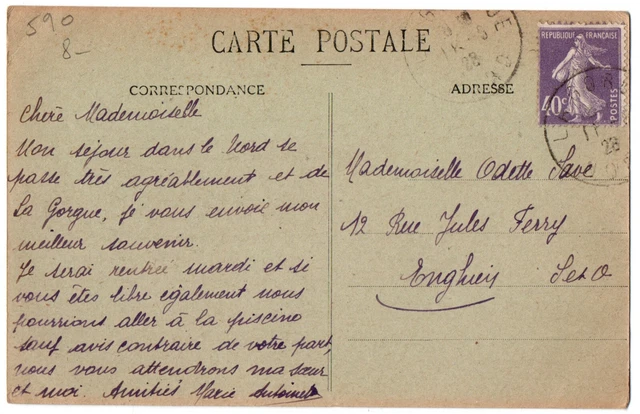 590
8-
CARTE POSTALE
CORRESPONDANCE
ADRESSE
REPUBLIQUE FRANÇAISE
40c
POSTES
28
28
Chère Mademoiselle
Mon séjour dans le Nord se
passe très agréablement et de
La Gorgue, je vous envoie mon
meilleur souvenir.
Je serai rentrée mardi et si
vous êtes libre également nous
pourrions aller à la piscine
sauf avis contraire de votre part,
nous vous attendrons ma sœur
et moi. Amitiés Marie Antoinette
Mademoiselle Odette Save
12 Rue Jules Ferry
Enghien S et O